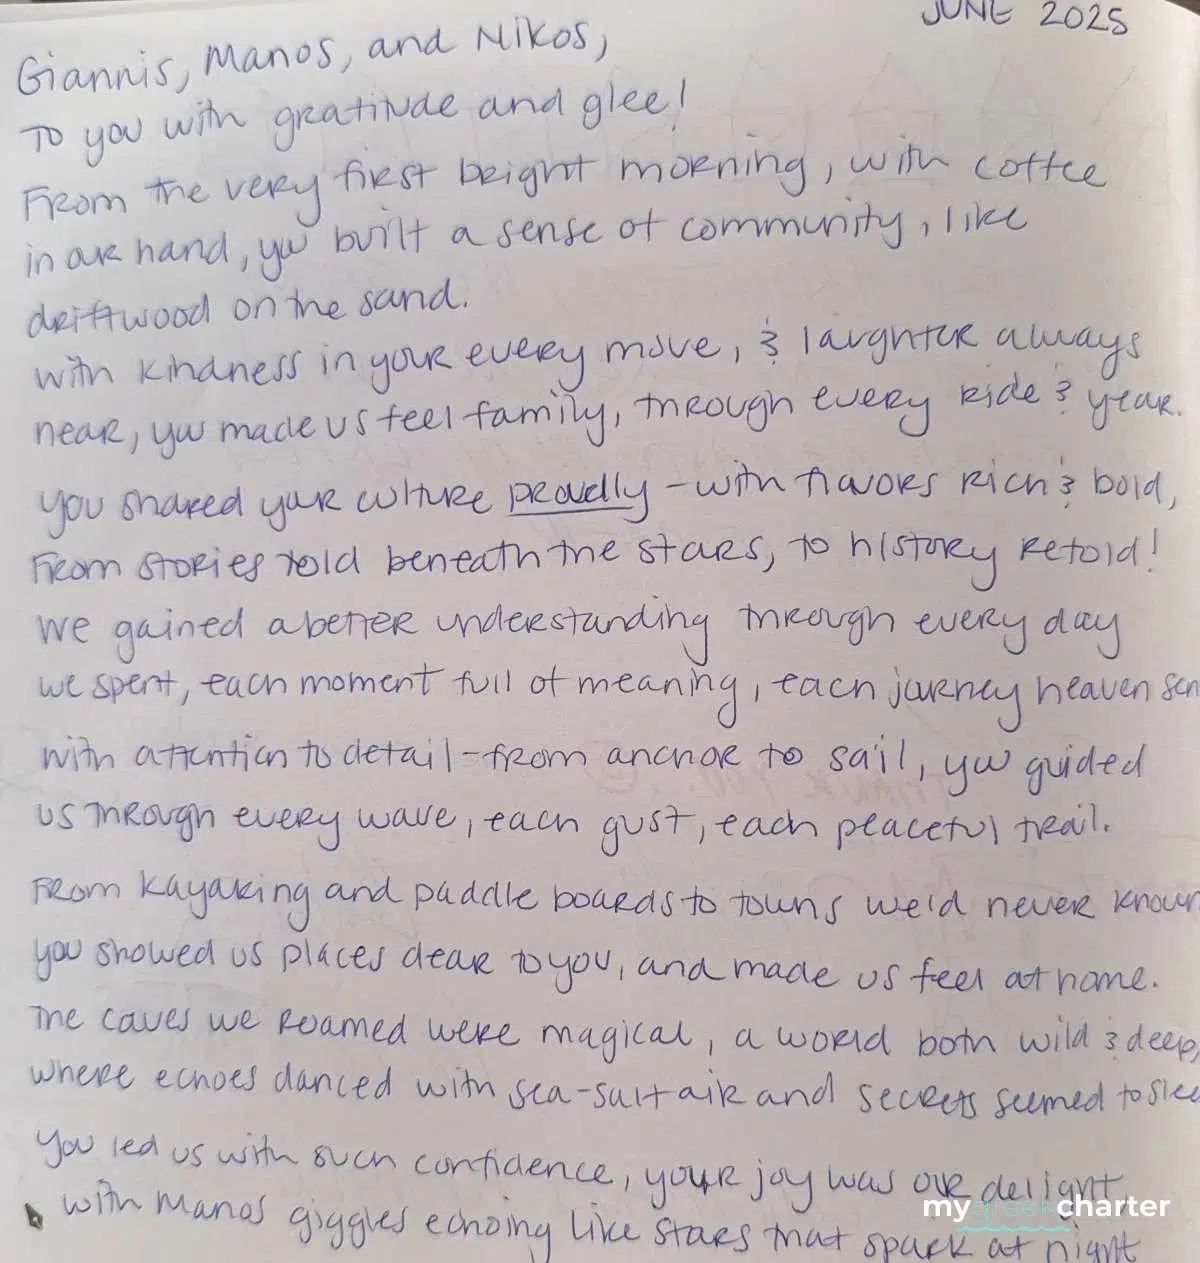 JUNE 2025
Giannis, Manos, and Nikos,
To you with gratitude and glee!
From the very first bright morning, with coffee
in our hand, you built a sense of community, like
driftwood on the sand.
with kindness in your every move, & laughter always
near, you made us feel family, through every ride & year.
you shared your culture proudly - with flavors rich & bold,
From stories told beneath the stars, to history retold!
we gained a better understanding through every day
we spent, each moment full of meaning, each journey heaven sen
with attention to detail - from anchor to sail, you guided
us through every wave, each gust, each peaceful trail.
From kayaking and paddle boards to towns we'd never known
you showed us places dear to you, and made us feel at home.
The caves we roamed were magical, a world both wild & deep,
where echoes danced with sea-salt air and secrets seemed to slee
You led us with such confidence, your joy was our delight
with Manos giggles echoing like stars that spark at night
mygreekcharter